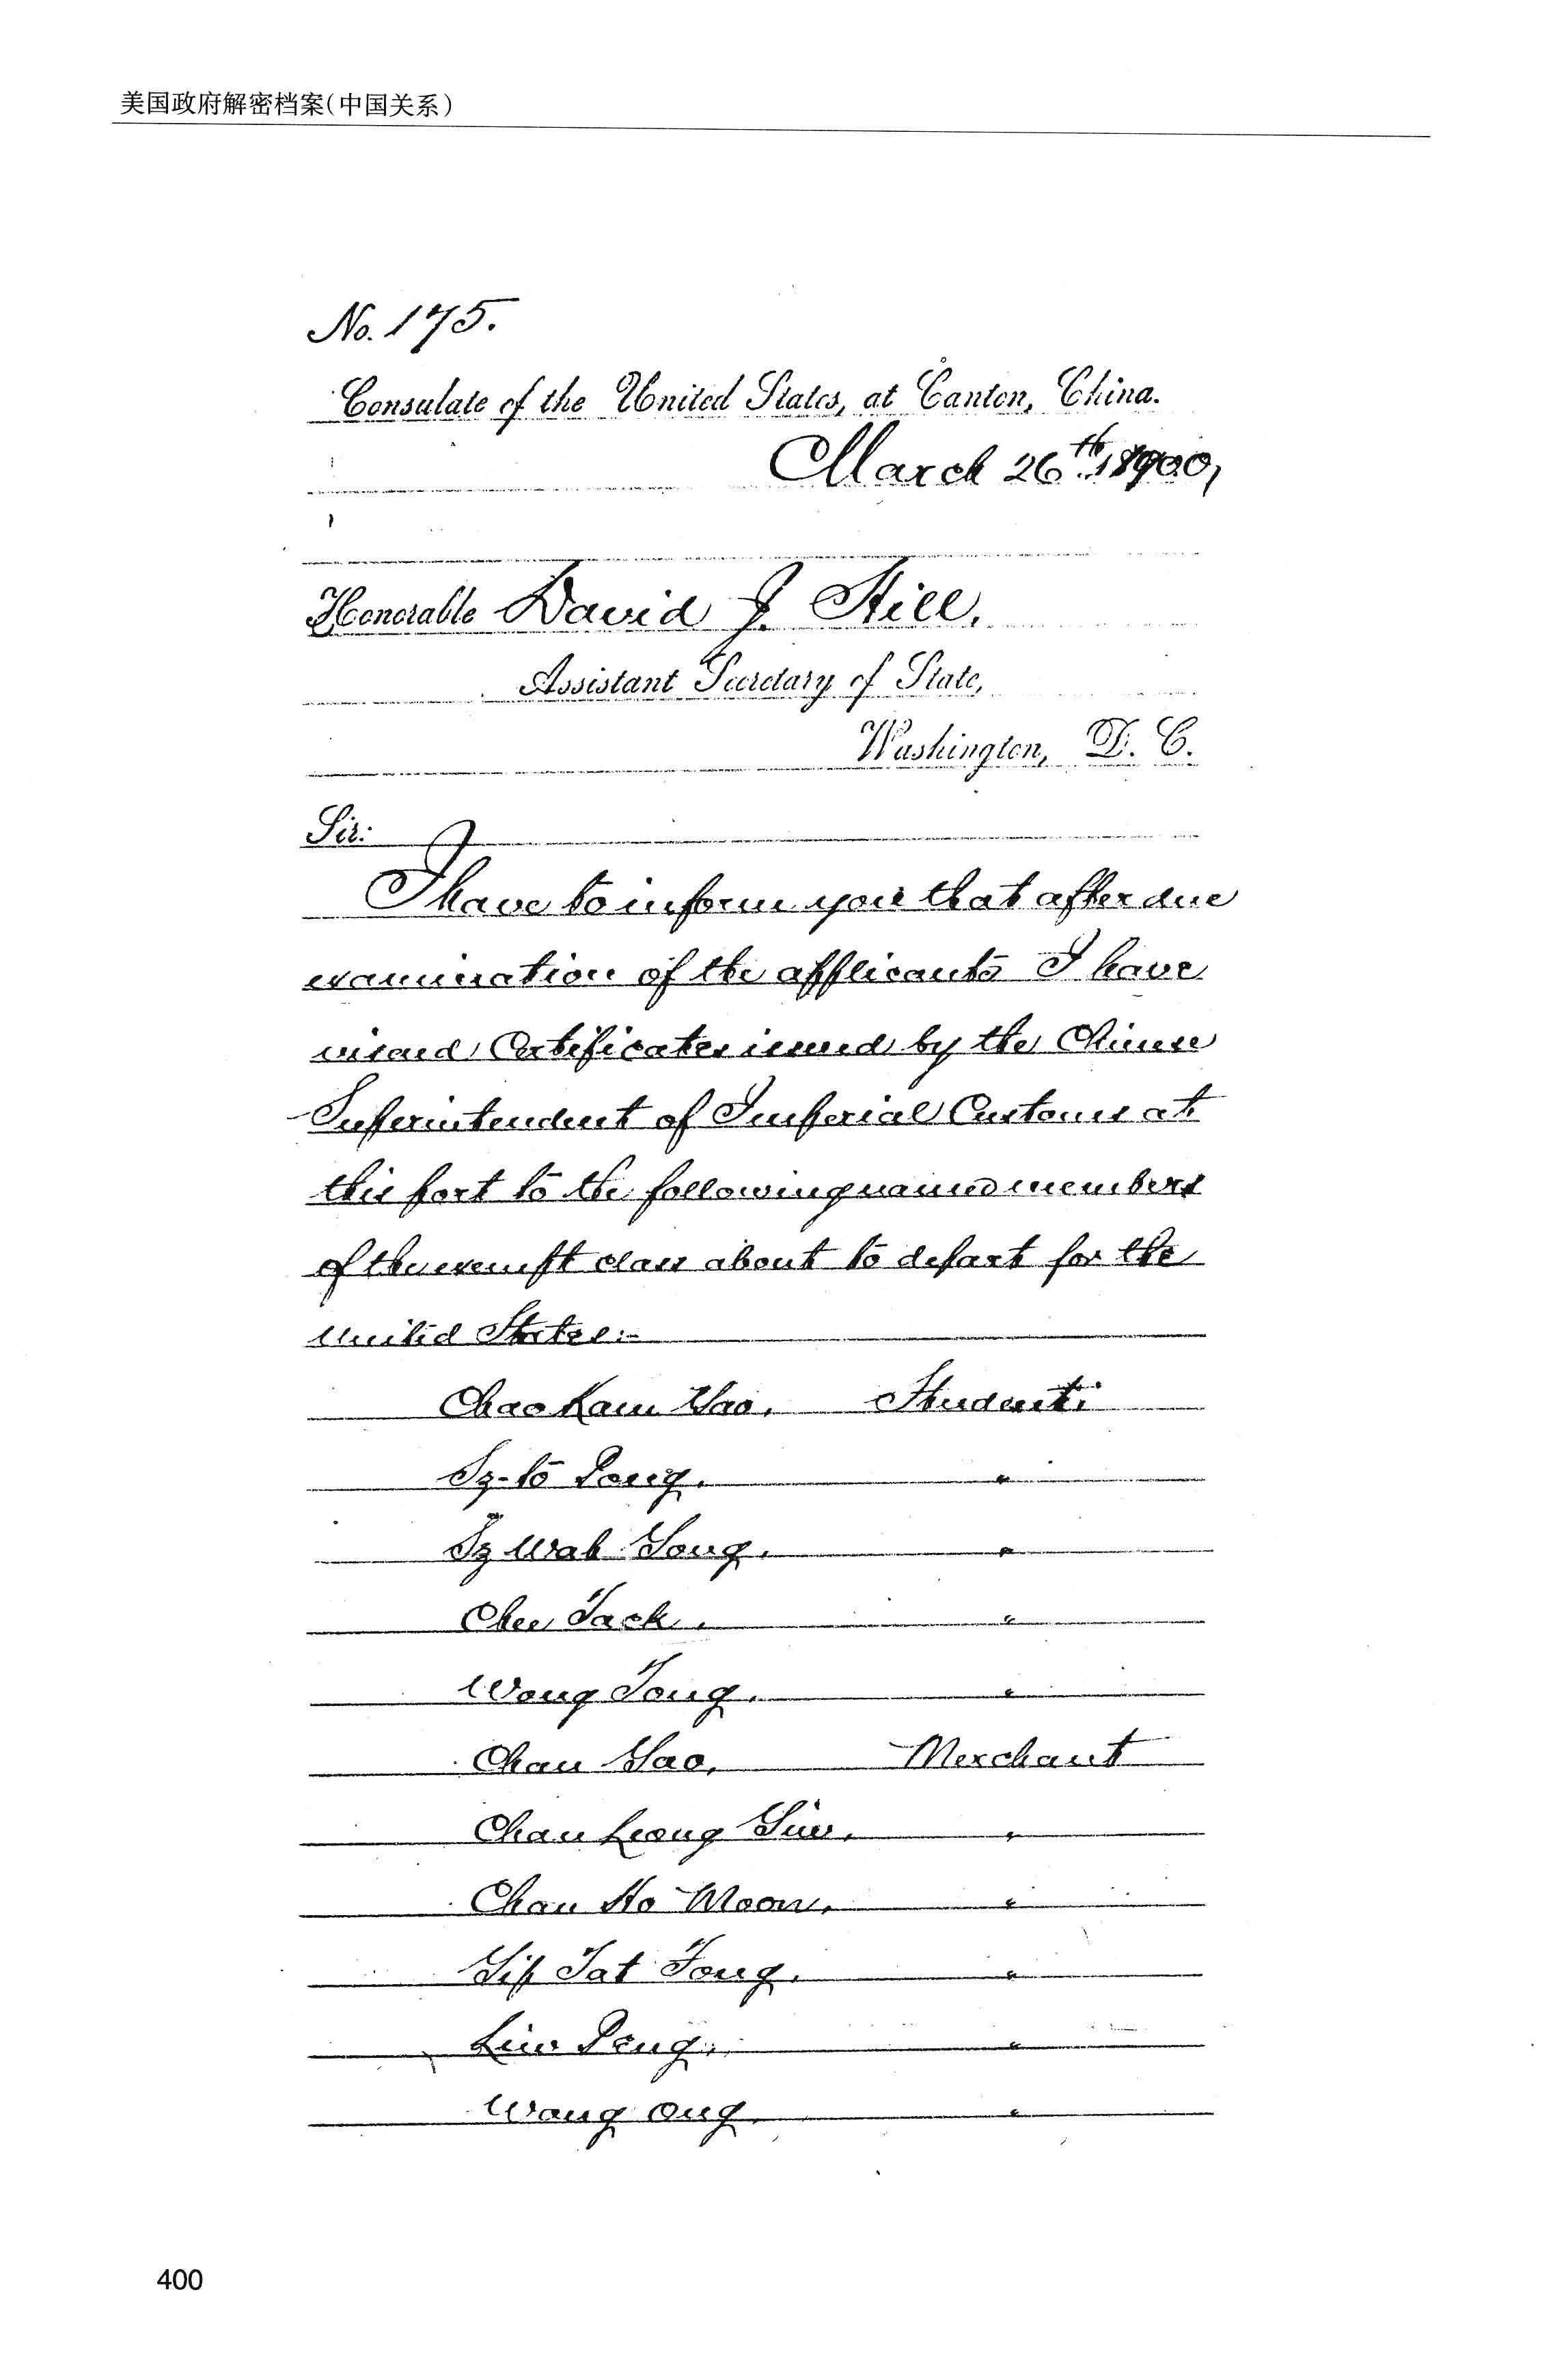 美国政府解密档案(中国关系)
No. 175.
Consulate of the United States, at Canton, China.
March 26th 1900,
Honorable David J. Hill,
Assistant Secretary of State,
Washington, D. C.
Sir:
I have to inform you that after due
examination of the applicants I have
visaed Certificates issued by the Chinese
Superintendent of Imperial Customs at
this port to the following named members
of the exempt class about to depart for the
United States:-
Chao Kam Yao, Student
Sz-to Pong. "
Sz Wah Yong. "
Chee Tack. "
Wong Tong. "
Chan Yao, Merchant
Chan Leong Yiu. "
Chan Ho Moon, "
Yip Tat Fong. "
Liu Peng. "
Wong Ong "
400